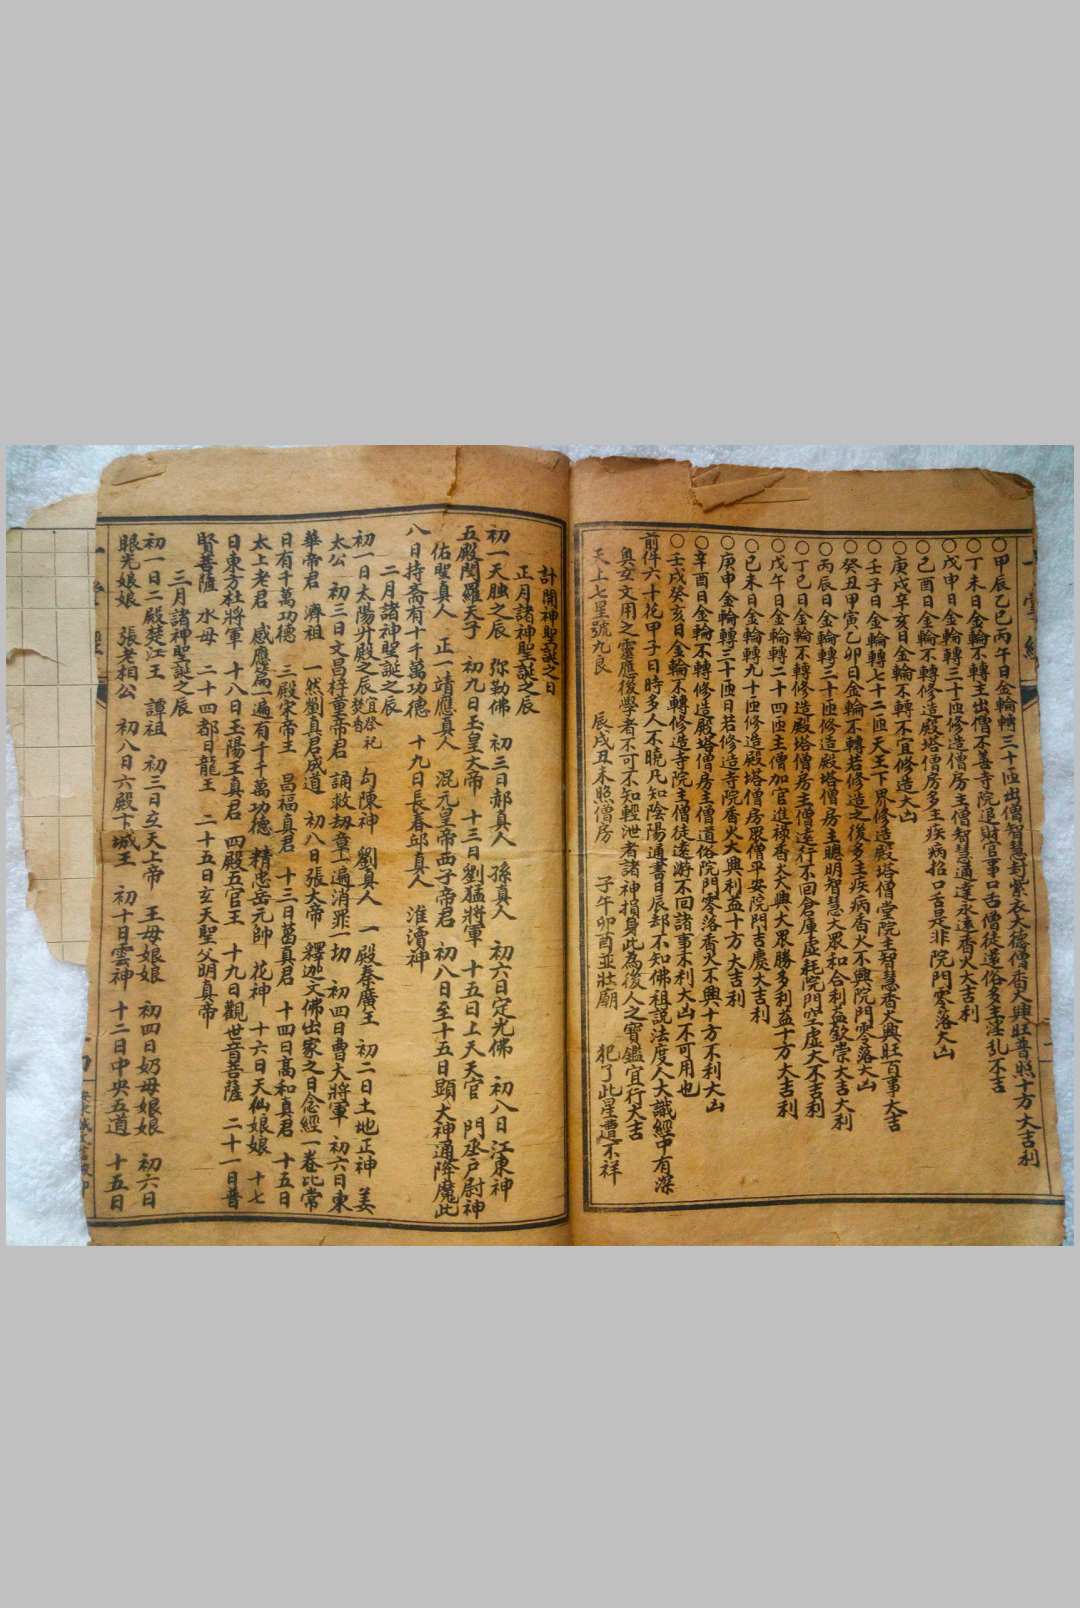 ○甲辰乙巳丙午日金輪轉三十匝出僧智慧封紫衣大德僧香火興旺普照十方大吉利
○丁未日金輪不轉主出僧不善寺院退財官事口舌僧徒還俗多主淫乱不吉
○戊申日金輪轉三十匝修造僧房主僧智慧通達永遠香火大吉利
○己酉日金輪不轉修造殿塔僧房多主疾病招口舌是非院門寒落大凶
○庚戌辛亥日金輪不轉不宜修造大凶
○壬子日金輪轉七十二匝天王下界修造殿塔僧堂院主智慧香火興旺百事大吉
○癸丑甲寅乙卯日金輪不轉若修造之後多主疾病香火不興院門零落大凶
○丙辰日金輪轉三十匝修造殿塔僧房主聰明智慧大眾和合利益欽崇大吉大利
○丁巳日金輪不轉修造殿塔僧房主僧遠行不回倉庫虛耗院門空虛大不吉利
○戊午日金輪轉二十四匝主僧加官進祿香火大興大眾勝多利益十方大吉利
○己未日金輪轉九十匝修造殿塔僧房眾僧平安院門吉慶大吉利
○庚申金輪轉三十匝日若修造寺院香火大興利益十方大吉利
○辛酉日金輪不轉修造殿塔僧房主僧道俗院門寒落香火不興十方不利大凶
○壬戌癸亥日金輪不轉修造寺院主僧徒遠游不回諸事未利大凶不可用也
前件六十花甲子日時多人不曉凡知陰陽通書日辰却不知佛祖説法度人大識經中有深
奧安文用之靈應後學者不可不知輕泄者諸神損身此為後人之寶鑑宜行大吉
天上七星號九良 辰戌丑未照僧房 子午卯酉並壯廟 犯了此星遭不祥
計開神聖誕之日
正月諸神聖誕之辰
初一天臘之辰 弥勒佛 初三日郝真人 孫真人 初六日定光佛 初八日江東神
五殿閆羅天子 初九日玉皇大帝 十三日劉猛將軍 十五日上天天官 門丞戶尉神
佑聖真人 正一靖應真人 混元皇帝西子帝君 初八日至十五日顕大神通降魔此
八日持斋有千千萬功德 十九日長春邱真人 淮瀆神
二月諸神聖誕之辰
初一日太陽升殿之辰宜祭祀焚香 勾陳神 劉真人 一殿秦廣王 初二日土地正神 姜
太公 初三日文昌梓童帝君 誦救劫章一遍消罪一切 初四日曹大將軍 初六日東
華帝君 濟祖 一然劉真君成道 初八日張大帝 釋迦文佛出家之日念經一卷比常
日有千萬功德 三殿宋帝王 昌福真君 十三日葛真君 十四日高和真君 十五日
太上老君 感應篇一遍有千千萬功德 精忠岳元帥 花神 十六日天仙娘娘 十七
日東方杜將軍 十八日玉陽王真君 四殿五官王 十九日觀世音菩薩 二十一日普
賢菩薩 水母 二十四都日龍王 二十五日玄天聖父明真帝
三月諸神聖誕之辰
初一日二殿楚江王 譚祖 初三日玄天上帝 王母娘娘 初四日奶母娘娘 初六日
眼光娘娘 張老相公 初八日六殿卞城王 初十日雲神 十二日中央五道 十五日